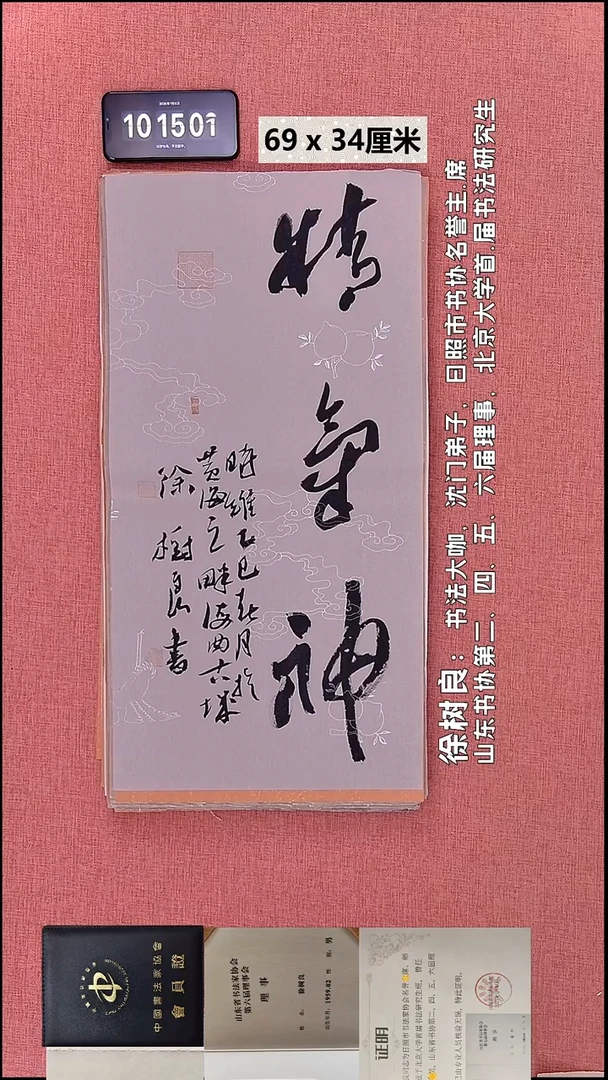 10 15 01
69 x 34厘米
精氣神
時維乙巳春月於
黄海之畔海曲古城
徐樹良書
徐树良：书法大咖，沈门弟子，日照市书协名誉主.席
山东书协第二、四、五、六届理事，北京大学首.届书法研究生
中國書法家協會
會員證
山东省书法家协会
第六届理事会
理事
姓名：徐树良
性别：男
出生年月：1959.02
证明